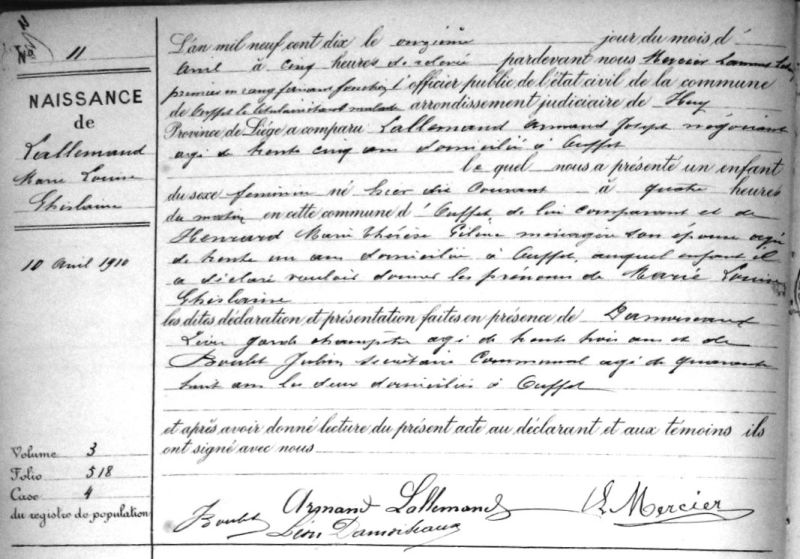 No 11
NAISSANCE
de
Lallemand
Marie Louise
Ghislaine
10 Avril 1910
Volume 3
Folio 518
Case 4
du registre de population
L'an mil neuf cent dix le onzième jour du mois d'
Avril à cinq heures de relevée pardevant nous Mercier Laurent
premier en rang faisant fonction d'officier public de l'état civil de la commune
de Ouffet le titulaire étant malade arrondissement judiciaire de Huy
Province de Liége a comparu Lallemand Armand Joseph négociant
agé de trente cinq ans domicilié à Ouffet
lequel nous a présenté un enfant
du sexe feminin né hier dix Courant à quatre heures
du matin en cette commune d'Ouffet, de lui comparant et de
Henrard Marie Thérèse Céline ménagère son épouse agée
de trente un ans domiciliée à Ouffet, auquel enfant il
a déclaré vouloir donner les prénoms de Marie Louise
Ghislaine
les dites déclaration et présentation faites en présence de Damoiseaux
Léon garde champêtre agé de trente trois ans et de
Boulet Jubin secrétaire Communal agé de quarante
huit ans les deux domiciliés à Ouffet
et après avoir donné lecture du présent acte au déclarant et aux témoins ils
ont signé avec nous
JBoulet Armand Lallemand L Mercier
Léon Damoiseaux